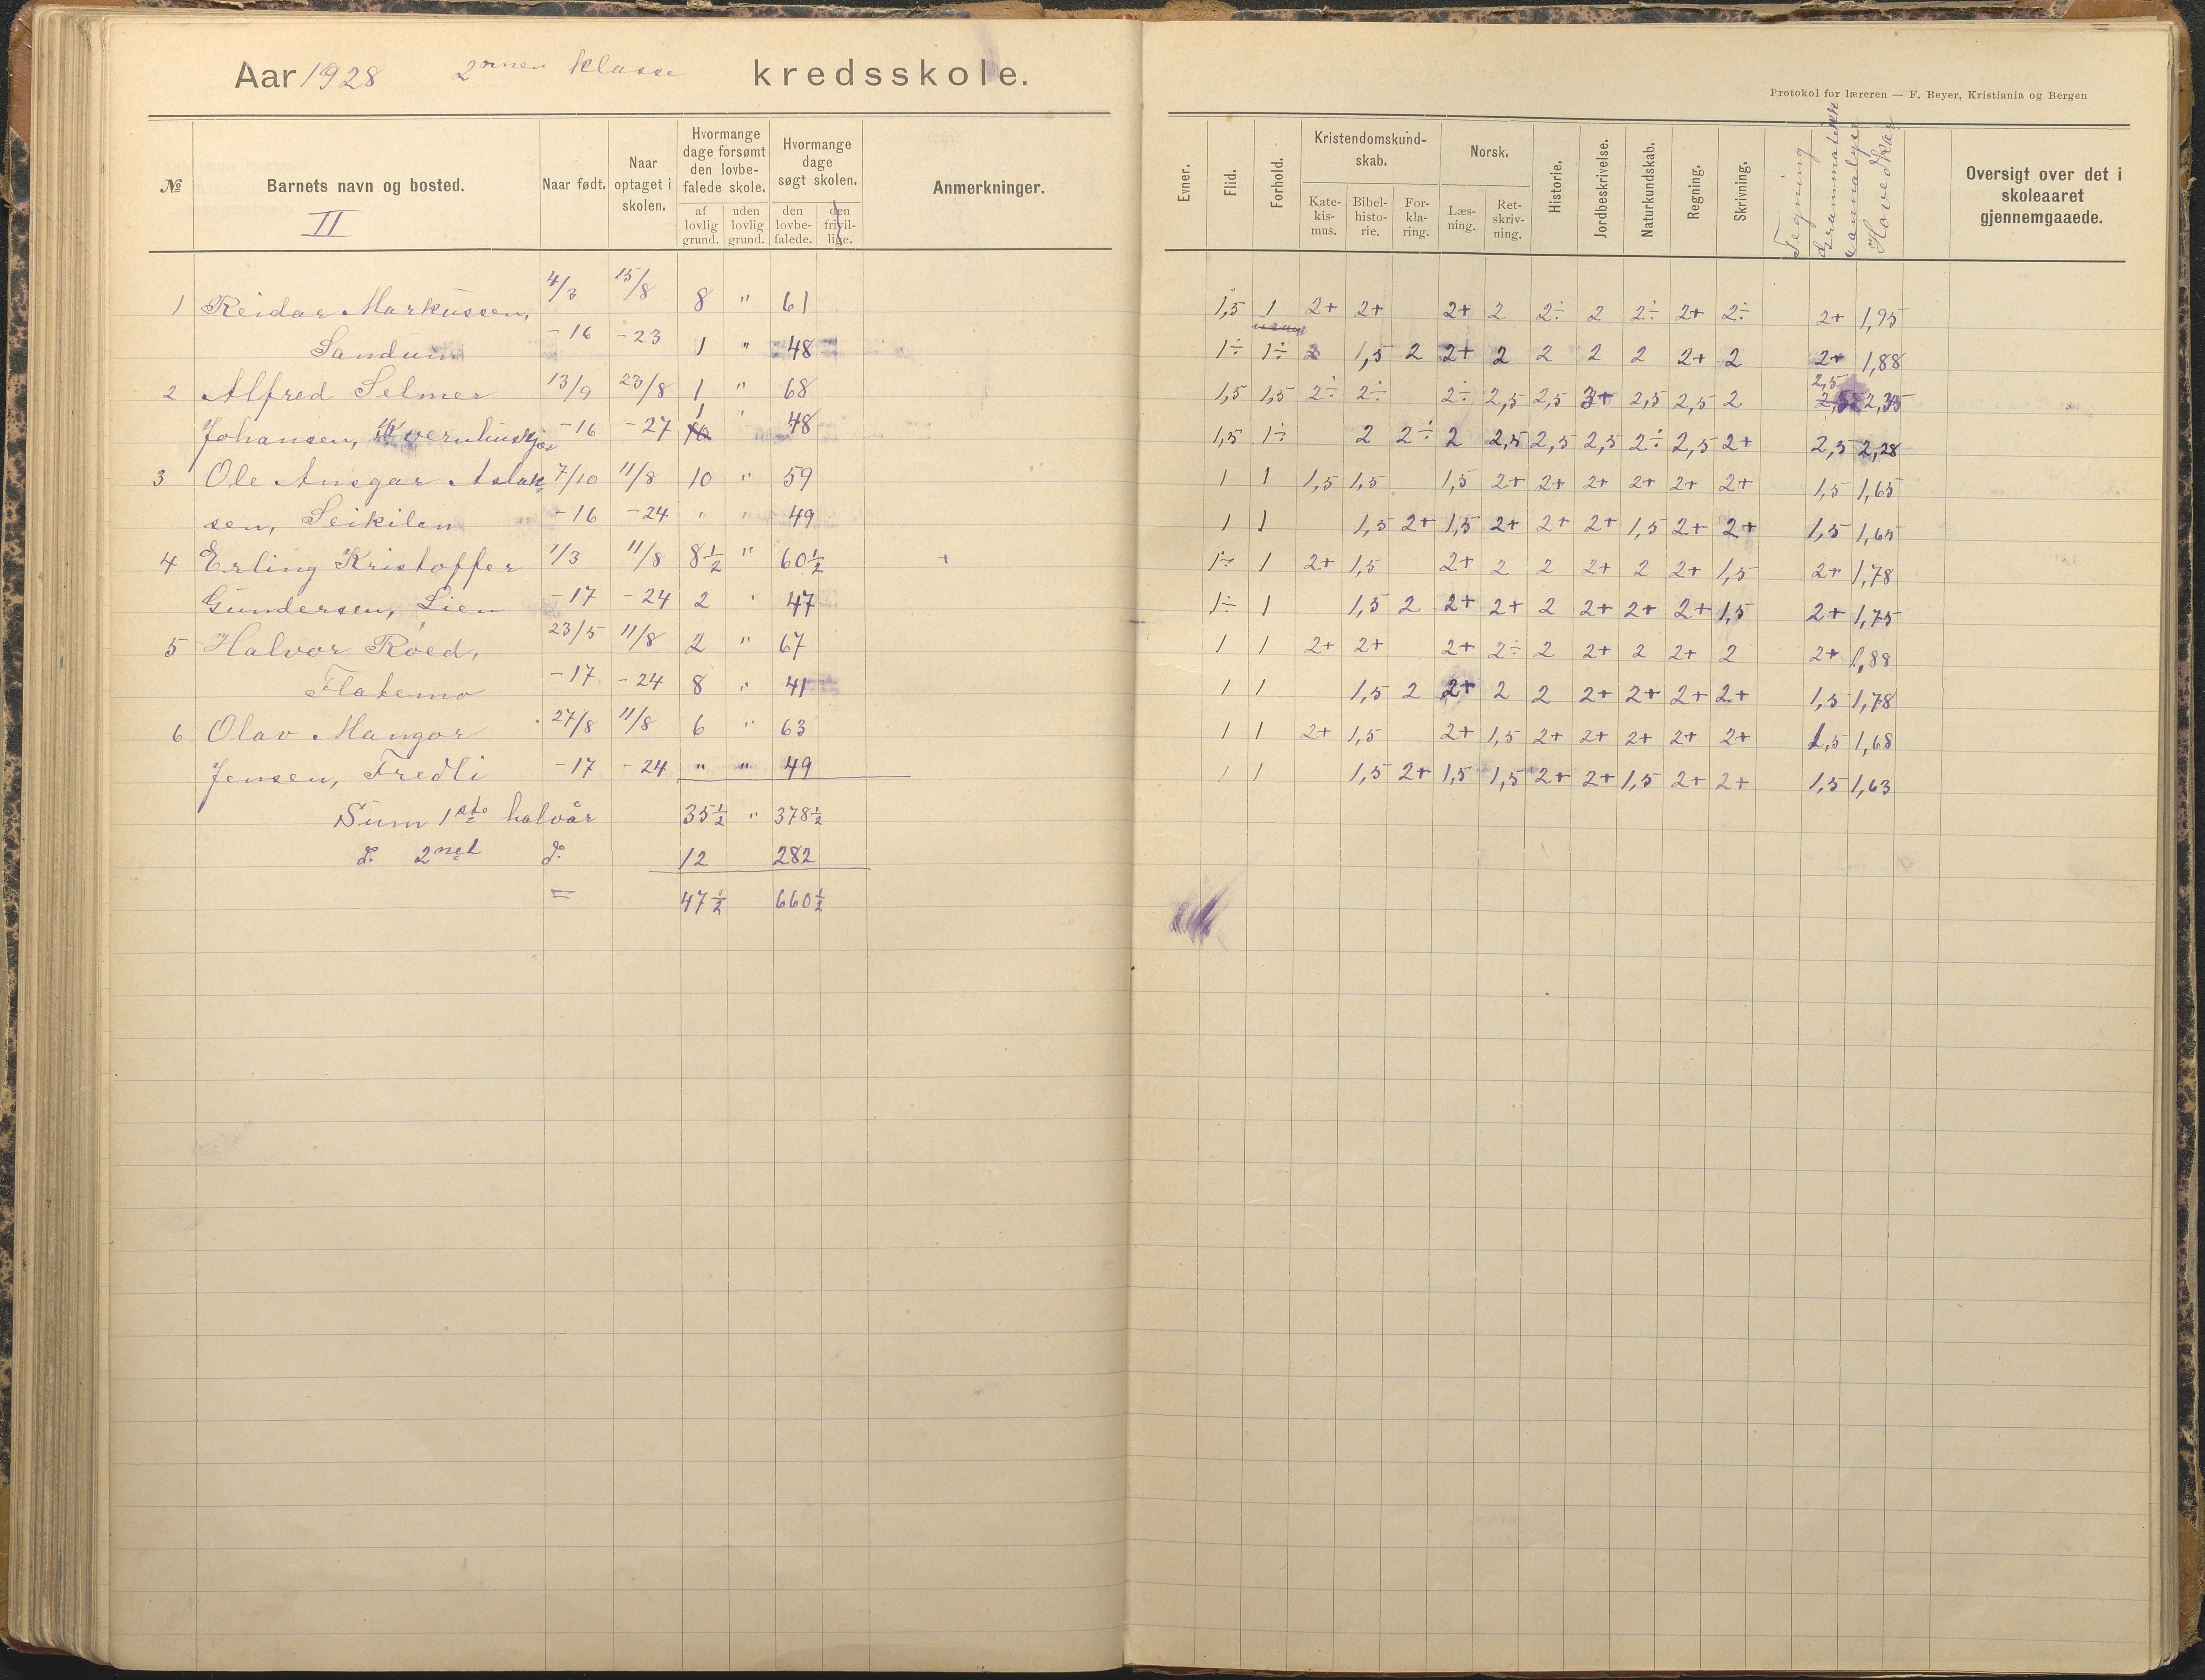 Aar 1928 2nnen klasse kredsskole.
Protokol for læreren — F. Beyer, Kristiania og Bergen
№ Barnets navn og bosted. Naar født. Naar optaget i skolen. Hvormange dage forsømt den lovbefalede skole. af lovlig grund. uden lovlig grund. Hvormange dage søgt skolen. den lovbefalede. den frivillige. Anmerkninger.
II
Evner. Flid. Forhold. Kristendomskundskab. Katekismus. Bibelhistorie. Forklaring. Norsk. Læsning. Retskrivning. Historie. Jordbeskrivelse. Naturkundskab. Regning. Skrivning. Tegning Grammatikk Hovedkar Oversigt over det i skoleaaret gjennemgaaede.
1 Reidar Markussen, 4/3 15/8 8 " 61 1,5 1 2+ 2+ 2+ 2 2÷ 2 2÷ 2+ 2÷ 2+ 1,95
Sandum -16 -23 1 " 48 1÷ 1÷ 2 1,5 2 2+ 2 2 2 2 2+ 2 2+ 1,88
2 Alfred Selmer 13/9 23/8 1 " 68 1,5 1,5 2÷ 2÷ 2÷ 2,5 2,5 3+ 2,5 2,5 2 2,5 2,35
Johansen, Kvernhuskjær -16 -27 1 " 48 1,5 1÷ 2 2÷ 2 2,5 2,5 2,5 2÷ 2,5 2+ 2,5 2,28
3 Ole Ansgar Aslak- 7/10 11/8 10 " 59 1 1 1,5 1,5 1,5 2+ 2+ 2+ 2+ 2+ 2+ 1,5 1,65
sen, Seikilen -16 -24 " " 49 1 1 1,5 2+ 1,5 2+ 2+ 2+ 1,5 2+ 2+ 1,5 1,65
4 Erling Kristoffer 1/3 11/8 8½ " 60½ + 1÷ 1 2+ 1,5 2+ 2 2 2+ 2 2+ 1,5 2+ 1,78
Gundersen, Lien -17 -24 2 " 47 1÷ 1 1,5 2 2+ 2+ 2 2+ 2+ 2+ 1,5 2+ 1,75
5 Halvor Roed, 23/5 11/8 2 " 67 1 1 2+ 2+ 2+ 2÷ 2 2+ 2 2+ 2 2+ 1,88
Flatemo -17 -24 8 " 41 1 1 1,5 2 2+ 2 2 2+ 2+ 2+ 2+ 1,5 1,78
6 Olav Mangor 27/8 11/8 6 " 63 1 1 2+ 1,5 2+ 1,5 2+ 2+ 2+ 2+ 2+ 1,5 1,68
Jensen, Fredli -17 -24 " " 49 1 1 1,5 2+ 1,5 1,5 2+ 2+ 1,5 2+ 2+ 1,5 1,63
Sum 1ste halvår 35½ " 378½
d. 2net d. 12 282
= 47½ 660½